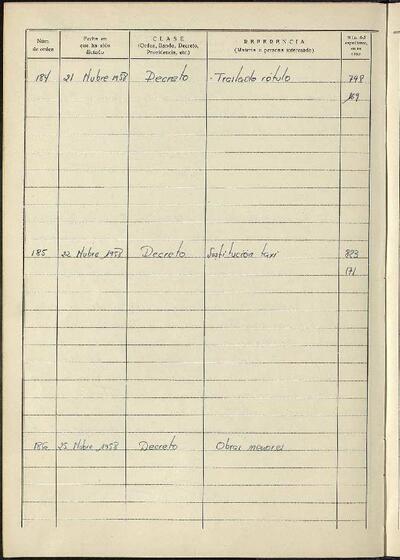 Núm. de orden
Fecha en que ha sido dictado
CLASE
(Orden, Bando, Decreto, Providencia, etc.)
REFERENCIA
(Materia o persona interesada)
Núm. del
184 21 Nubre 1958 Decreto Traslado rótulo 798
169
185 22 Nubre 1958 Decreto Sustitución taxi 823
171
186 25 Nubre 1958 Decreto Obras menores